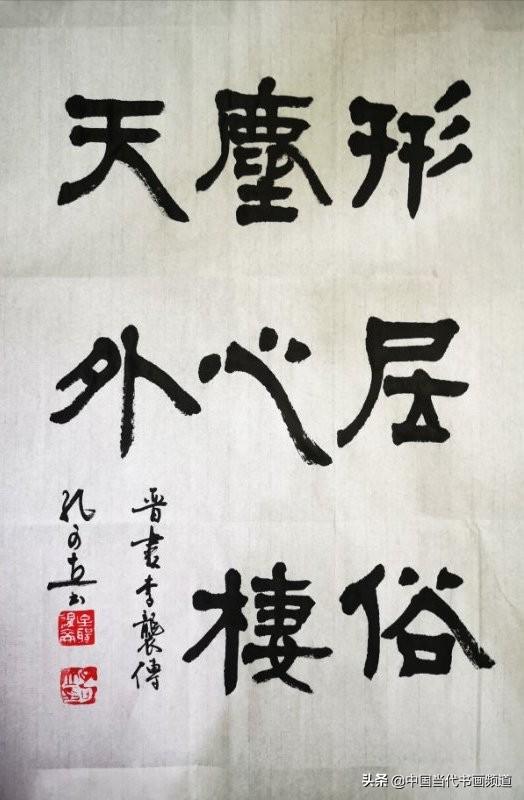 形居俗
塵心棲
天外
晋書襲傳
孔可立书
头条 @中国当代书画频道